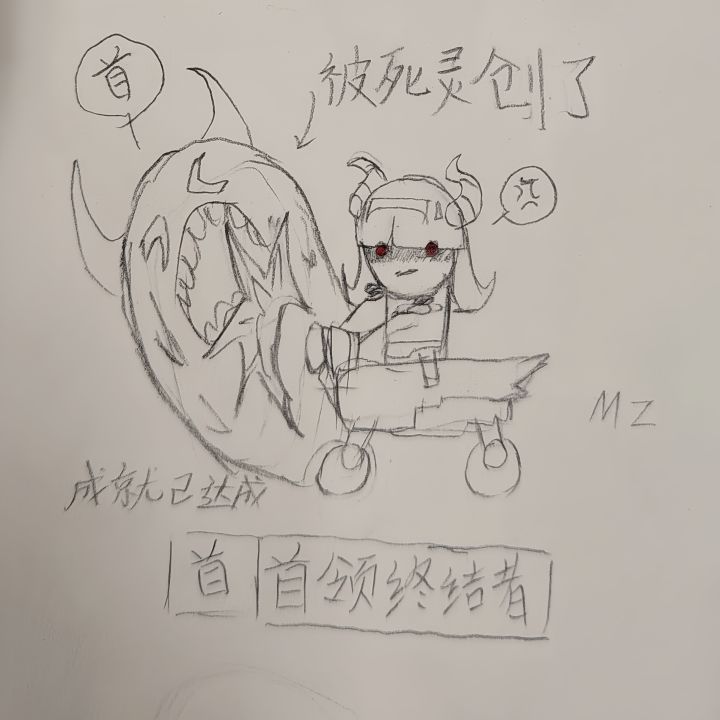 首
被死灵创了
MZ
成就已达成
首 首领终结者